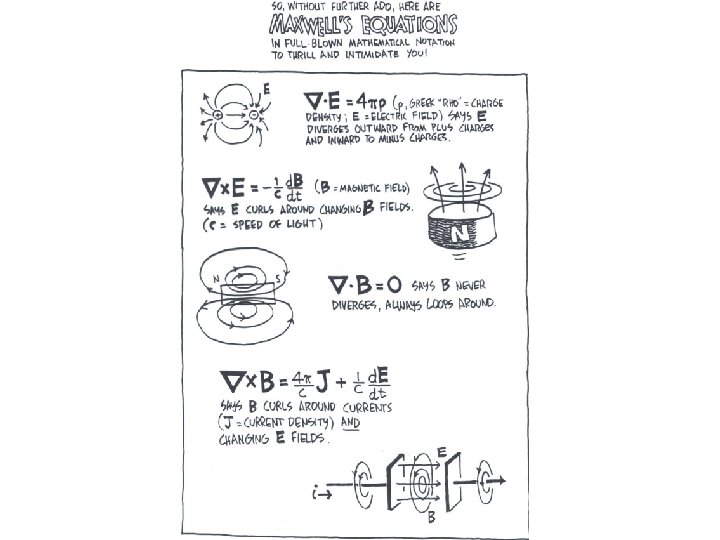 SO, WITHOUT FURTHER ADO, HERE ARE
MAXWELL'S EQUATIONS
IN FULL-BLOWN MATHEMATICAL NOTATION
TO THRILL AND INTIMIDATE YOU!
E
+ -
∇·E = 4πρ (ρ, GREEK "RHO" = CHARGE
DENSITY; E = ELECTRIC FIELD) SAYS E
DIVERGES OUTWARD FROM PLUS CHARGES
AND INWARD TO MINUS CHARGES.
∇×E = -1/c dB/dt (B = MAGNETIC FIELD)
SAYS E CURLS AROUND CHANGING B FIELDS.
(C = SPEED OF LIGHT)
N
N S
∇·B = 0 SAYS B NEVER
DIVERGES, ALWAYS LOOPS AROUND.
∇×B = 4π/c J + 1/c dE/dt
SAYS B CURLS AROUND CURRENTS
(J = CURRENT DENSITY) AND
CHANGING E FIELDS.
E
i→
B